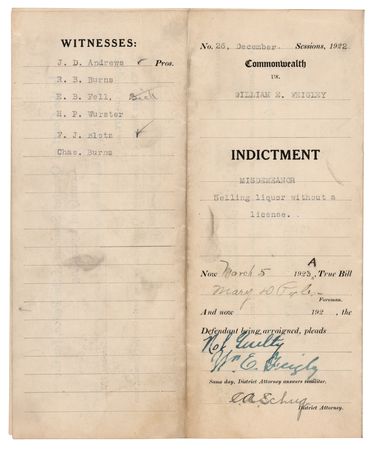 WITNESSES:
J. D. Andrews ✓ Pros.
R. B. Burns
E. B. Fell, Sick
H. P. Wurster
F. J. Blotz ✓
Chas. Burns
No. 26, December Sessions, 1922
Commonwealth
vs.
WILLIAM E. WEIGLEY
INDICTMENT
MISDEMEANOR
Nelling liquor without a
license.
Now March 5 1923, A True Bill
Mary D
Foreman.
And now 192 , the
Defendant being arraigned, pleads
Not Guilty
Wm E. Weigly
Same day, District Attorney answers similiter.
District Attorney.